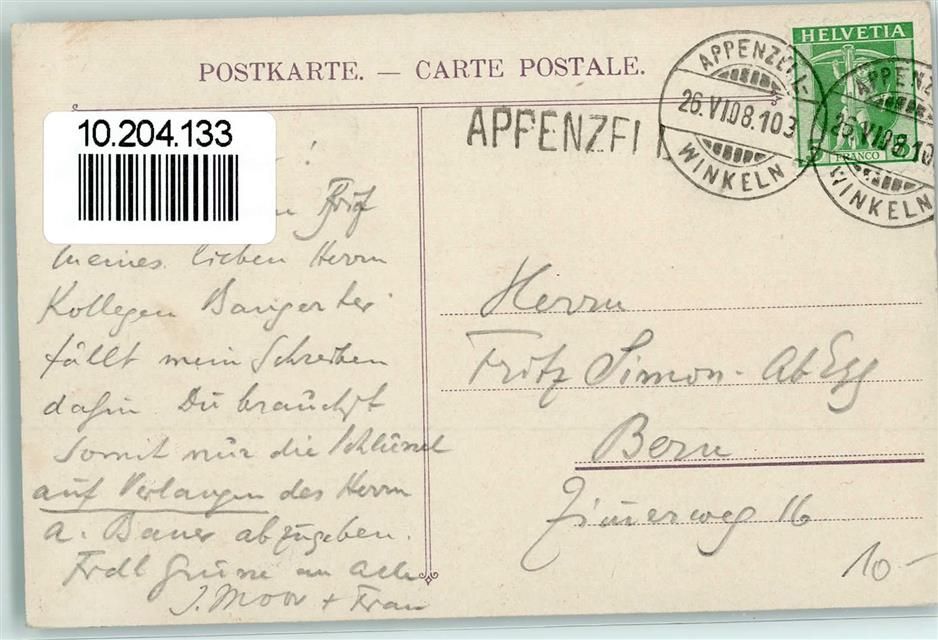 POSTKARTE. — CARTE POSTALE.
HELVETIA
5
FRANCO
APPENZELL-
26.VI.08.10
WINKELN
APPENZ
26.VI.08.10
WINKELN
APPENZEL
10.204.133
!
meines lieben Herrn
Kollegen Bangerter
fällt mein Schreiben
dahin. Du brauchst
somit nur die Schlüssel
auf Verlangen des Herrn
A. Bauer abzugeben.
Frdl Grüsse an alle
J. Moor + Frau
Herrn
Fritz Simon-AbEgg
Bern
16
10-